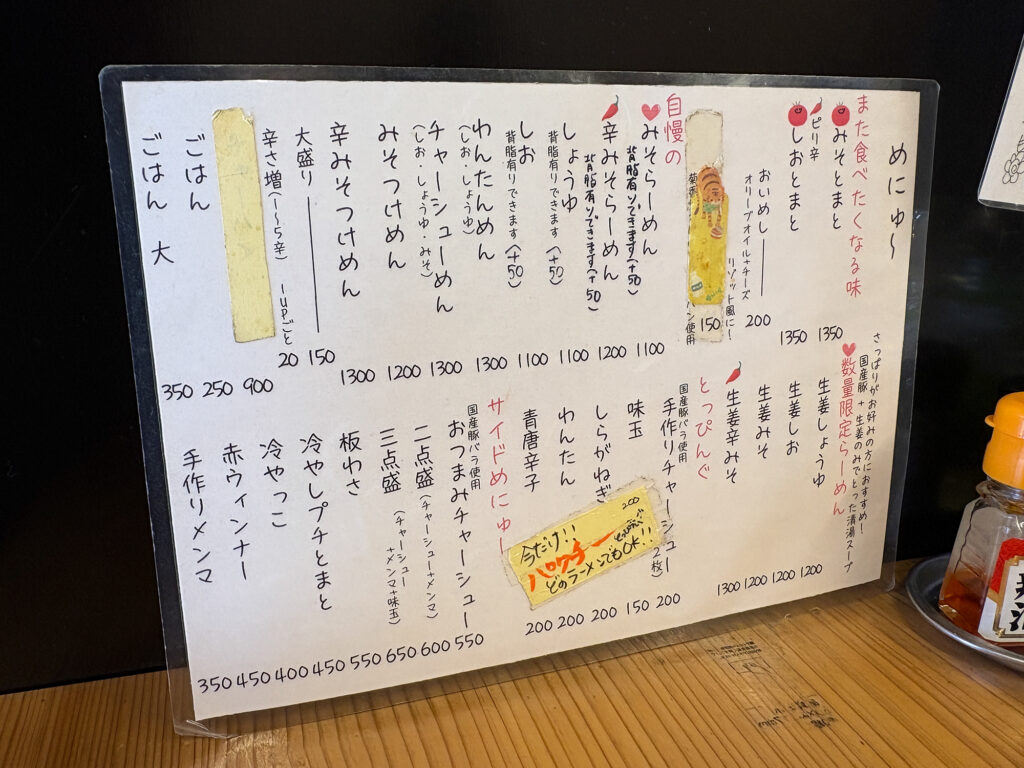 めにゅ〜
また食べたくなる味
みそとまと 1350
ピリ辛
しおとまと 1350
おいめし 200
オリーブオイル+チーズ
リゾット風に!
150
パン使用
自慢の
みそらーめん 1100
背脂有りできます(+50)
辛みそらーめん 1200
背脂有りできます(+50)
しょうゆ 1100
背脂有りできます(+50)
しお 1100
背脂有りできます(+50)
わんたんめん 1300
(しお・しょうゆ)
チャーシューめん 1300
(しお・しょうゆ・みそ)
みそつけめん 1200
辛みそつけめん 1300
大盛り 150
辛さ増(1〜5辛) 1upごと 20
900
ごはん 250
ごはん 大 350
さっぱりがお好みの方におすすめ!
国産豚+生姜のみでとった清湯スープ
数量限定らーめん
生姜しょうゆ 1200
生姜しお 1200
生姜みそ 1200
生姜辛みそ 1300
とっぴんぐ
国産豚バラ使用
手作りチャーシュー 2枚) 200
味玉 150
しらがねぎ 200
わんたん 200
青唐辛子 200
今だけ!!
パクチー
200
どのラーメンでもOK!!
サイドめにゅー
国産豚バラ使用
おつまみチャーシュー 550
二点盛(チャーシュー+メンマ) 600
三点盛(チャーシュー+メンマ+味玉) 650
板わさ 550
冷やしプチとまと 450
冷やっこ 400
赤ウィンナー 450
手作りメンマ 350